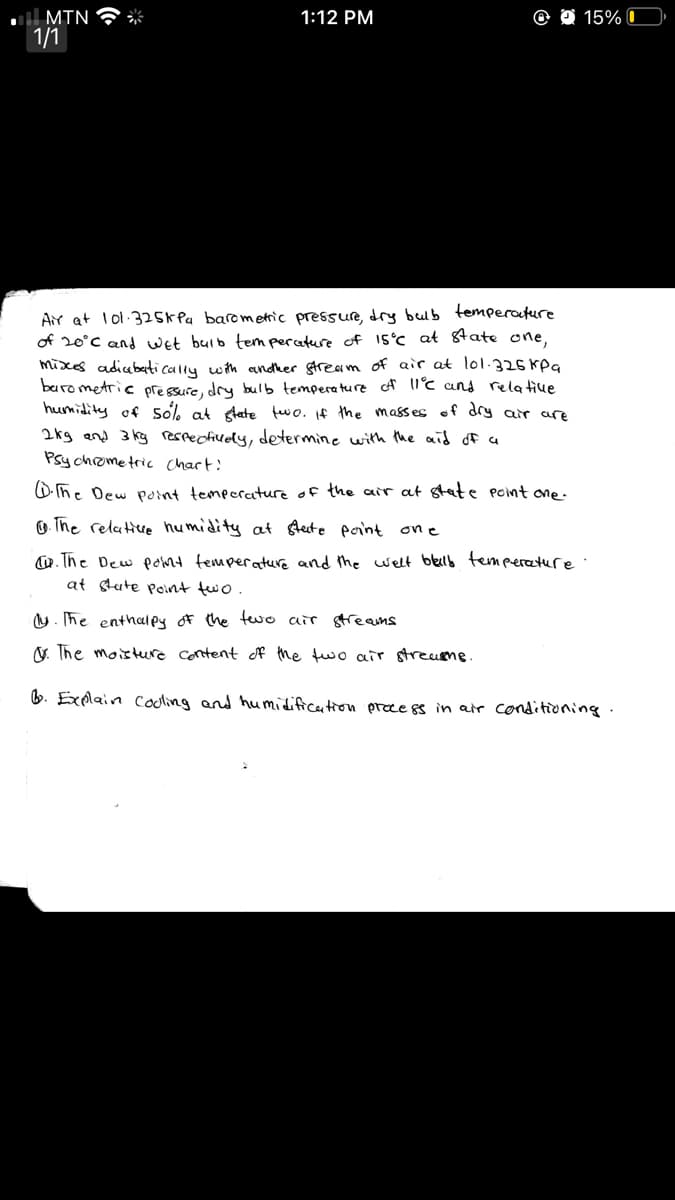 MTN 1:12 PM 15%
1/1
Air at 101.325kPa barometric pressure, dry bulb temperature
of 20°C and wet bulb temperature of 15°C at state one,
mixes adiabatically with another stream of air at 101.325 KPa
barometric pressure, dry bulb temperature of 11°C and relative
humidity of 50% at state two. if the masses of dry air are
2kg and 3kg respectively, determine with the aid of a
Psychrometric chart:
(i). The Dew point temperature of the air at state point one.
(ii). The relative humidity at state point one
(iii). The Dew point temperature and the wett bulb temperature
at state point two.
(iv). The enthalpy of the two air streams
(v). The moisture content of the two air streams.
b. Explain cooling and humidification process in air conditioning.